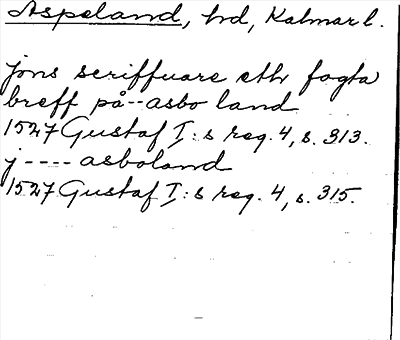 Aspeland, hd, Kalmar l.
jöns scriffuare eth fogta
breff på -- asbo land
1527 Gustaf I:s reg. 4, s. 313.
j ---- asboland
1527 Gustaf I:s reg. 4, s. 315.